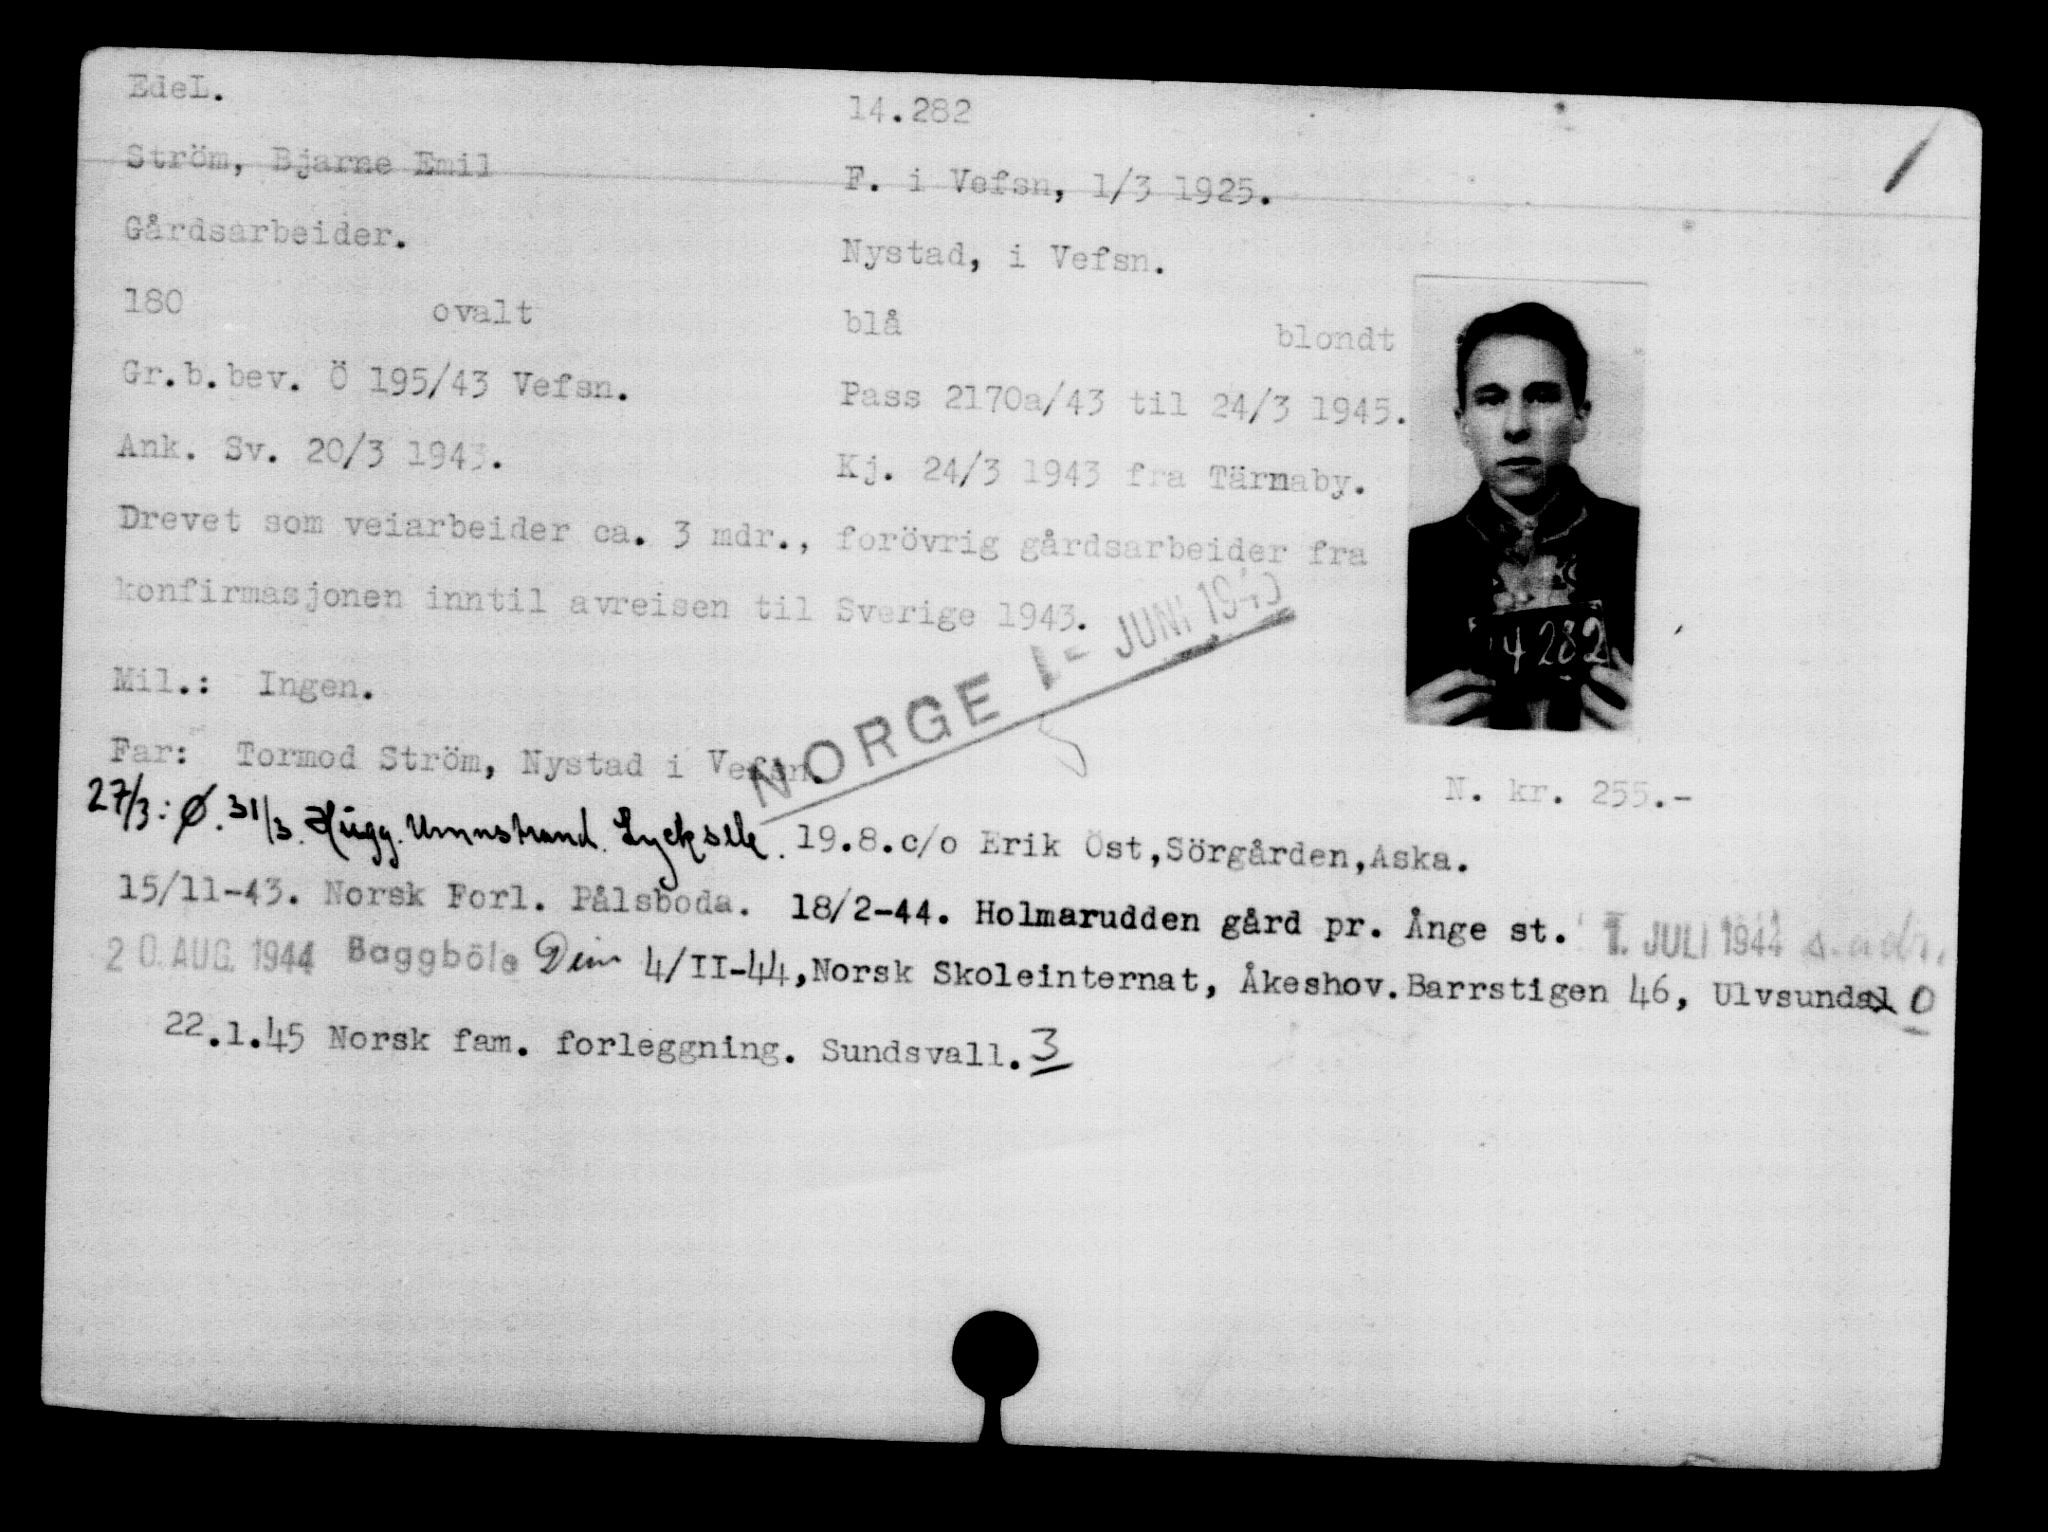 EdeL. 14.282
Ström, Bjarne Emil F. i Vefsn, 1/3 1925.
Gårdsarbeider. Nystad, i Vefsn.
180 ovalt blå blondt
Gr.b.bev. Ö 195/43 Vefsn. Pass 2170a/43 til 24/3 1945.
Ank. Sv. 20/3 1943. Kj. 24/3 1943 fra Tärnaby.
Drevet som veiarbeider ca. 3 mdr., forövrig gårdsarbeider fra
konfirmasjonen inntil avreisen til Sverige 1943.
NORGE 1 - JUNI 1945
14282
Mil.: Ingen.
Far: Tormod Ström, Nystad i Vefsn.
N. kr. 255.-
27/3: Ø. 31/3. Hugg. Umnstrand. Lycksele. 19.8.c/o Erik Öst,Sörgården,Aska.
15/11-43. Norsk Forl. Pålsboda. 18/2-44. Holmarudden gård pr. Ånge st. 1. JULI 1944 s. adr.
20. AUG. 1944 Baggböle 4/II-44,Norsk Skoleinternat, Åkeshov.Barrstigen 46, Ulvsundal 0
22.1.45 Norsk fam. forleggning. Sundsvall. 3